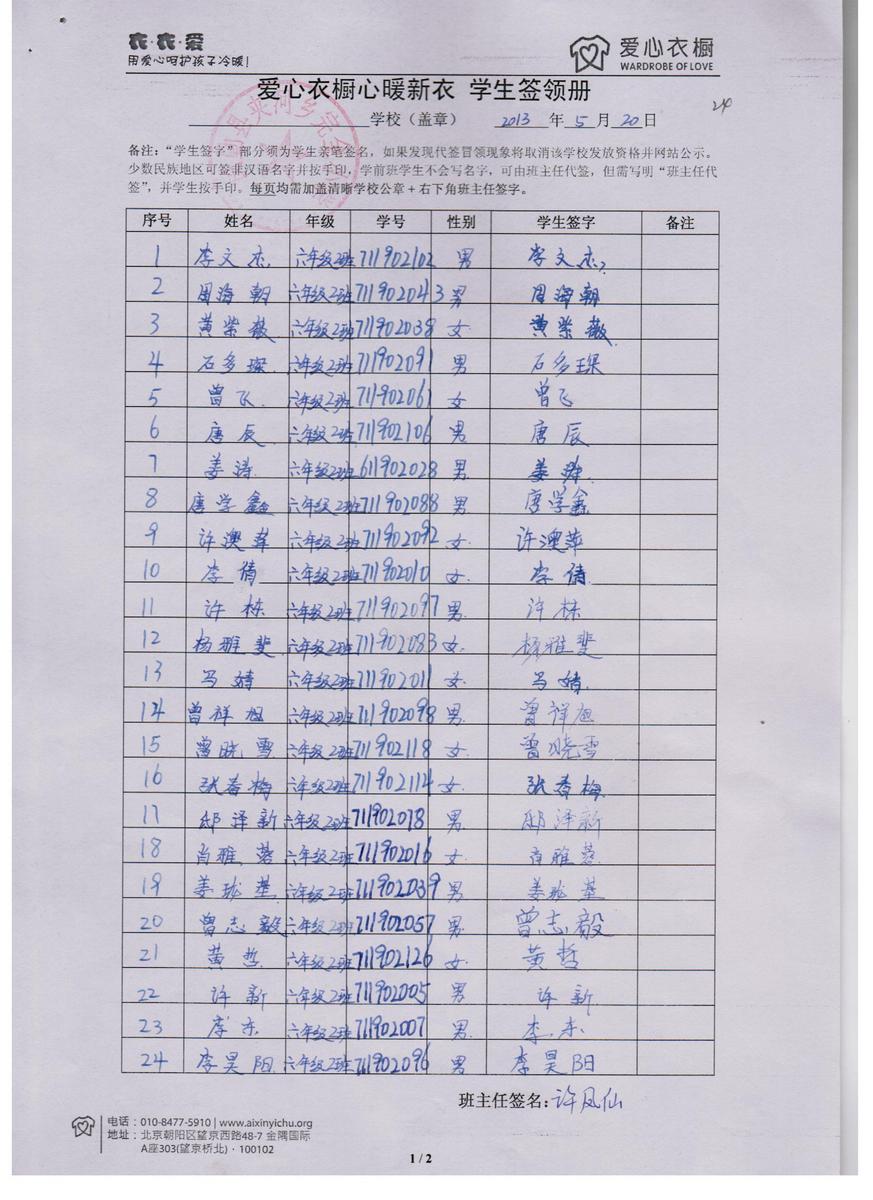 衣·衣·爱
用爱心呵护孩子冷暖!
爱心衣橱
WARDROBE OF LOVE
爱心衣橱心暖新衣 学生签领册
24
学校（盖章） 2013 年 5 月 20 日
备注：“学生签字”部分须为学生亲笔签名，如果发现代签冒领现象将取消该学校发放资格并网站公示。
少数民族地区可签非汉语名字并按手印，学前班学生不会写名字，可由班主任代签，但需写明“班主任代
签”，并学生按手印。每页均需加盖清晰学校公章+右下角班主任签字。
序号 姓名 年级 学号 性别 学生签字 备注
1 李文杰 六年级2班 711902102 男 李文杰
2 周海朝 六年级2班 711902043 男 周海朝
3 黄紫薇 六年级2班 711902038 女 黄紫薇
4 石多琛 六年级2班 711902091 男 石多琛
5 曾飞 六年级2班 711902061 女 曾飞
6 唐辰 六年级2班 711902106 男 唐辰
7 姜涛 六年级2班 611902028 男 姜涛
8 唐学鑫 六年级2班 711902088 男 唐学鑫
9 许澳苹 六年级2班 711902092 女 许澳苹
10 李倩 六年级2班 711902010 女 李倩
11 许栋 六年级2班 711902097 男 许栋
12 杨雅斐 六年级2班 711902083 女 杨雅斐
13 马婧 六年级2班 711902011 女 马婧
14 曾祥旭 六年级2班 711902098 男 曾祥旭
15 曾晓雪 六年级2班 711902118 女 曾晓雪
16 张春梅 六年级2班 711902114 女 张春梅
17 邸泽新 六年级2班 711902078 男 邸泽新
18 肖雅蓉 六年级2班 711902016 女 肖雅蓉
19 姜珑基 六年级2班 711902039 男 姜珑基
20 曾志毅 六年级2班 711902057 男 曾志毅
21 黄哲 六年级2班 711902126 女 黄哲
22 许新 六年级2班 711902005 男 许新
23 李东 六年级2班 711902007 男 李东
24 李昊阳 六年级2班 711902096 男 李昊阳
班主任签名:许凤仙
电话：010-8477-5910 | www.aixinyichu.org
地址：北京朝阳区望京西路48-7 金隅国际
A座303(望京桥北)·100102
1 / 2